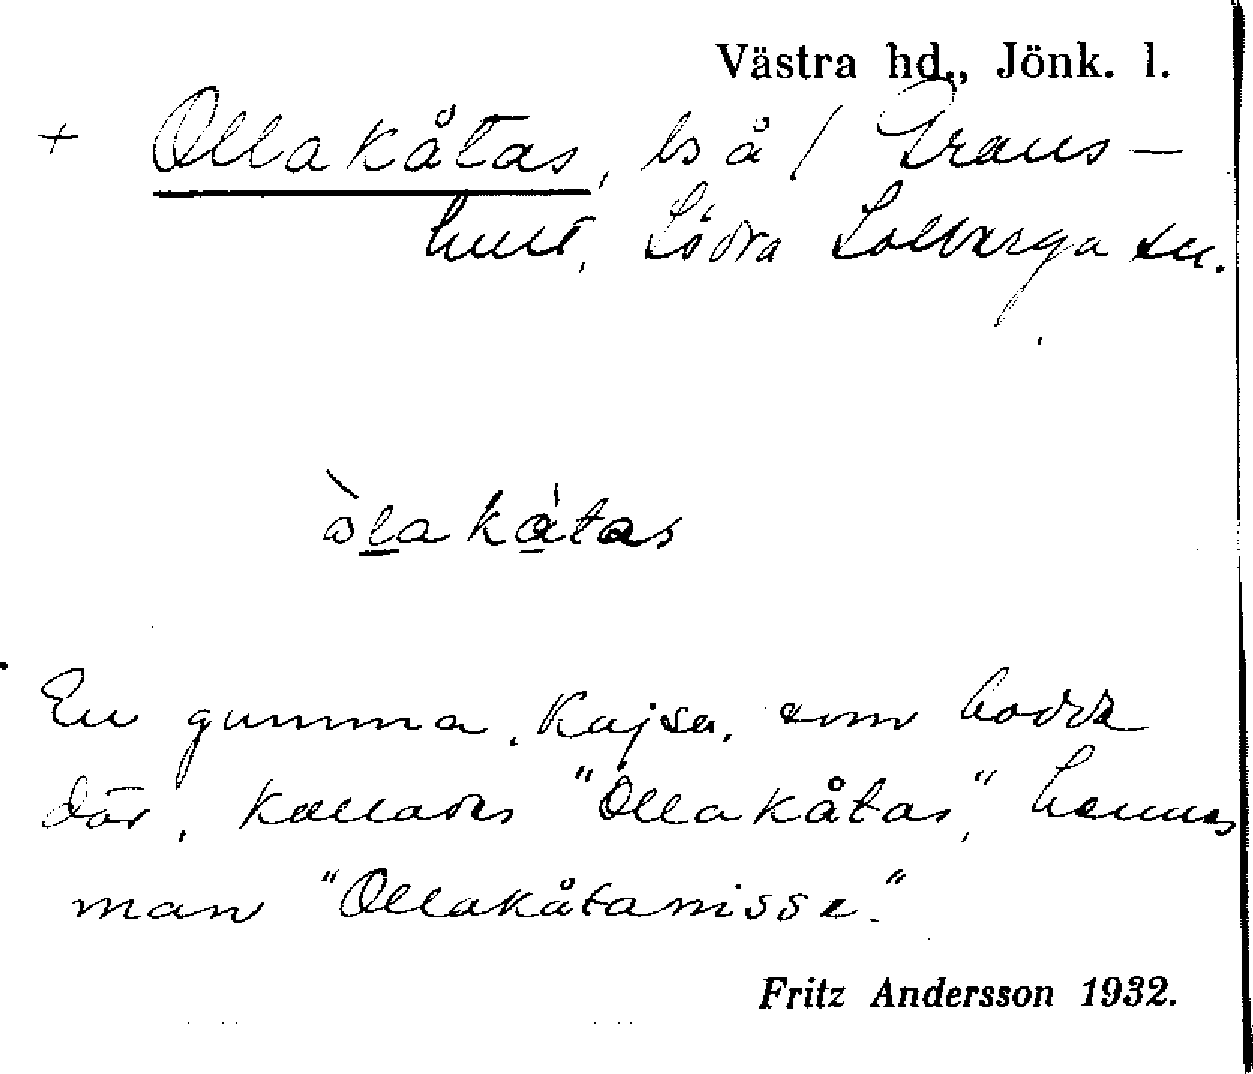 Västra hd., Jönk. l.
+ Ollakåtas, ls å / Grans-
hult, Södra Solberga sn.
òlakátas
En gumma, Kajsa, som bodde
där, kallades "Ollakåtas," hennes
man "Ollakåtanisse."
Fritz Andersson 1932.